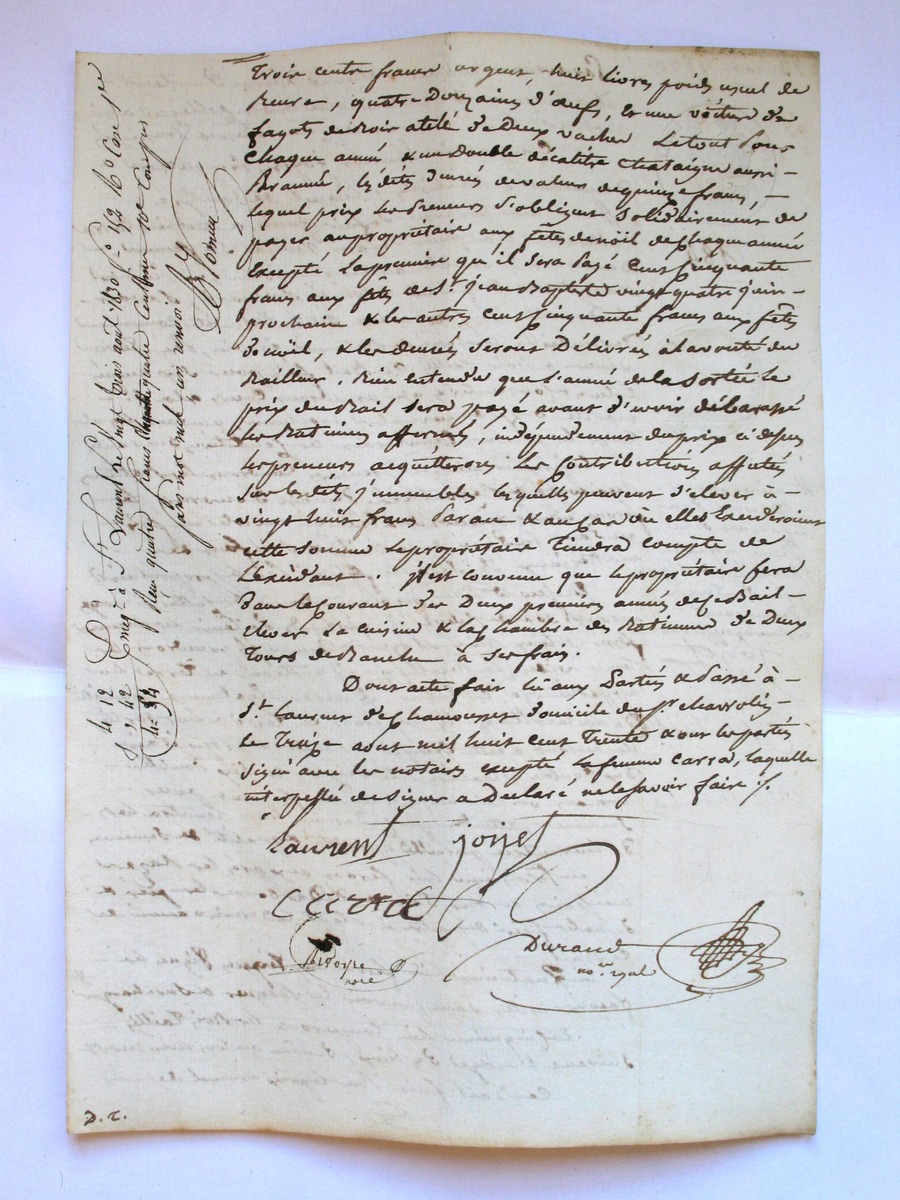 Trois cents francs argent, huit livres poids usuel de
beure, quatre Douzaines d'œufs, & une voiture de
fagots de Bois atelé de Deux vaches Le tout Pour
Chaque année & un Double décalitre Chataigne aussi
Par année, les dites Denrées de valeur de quinze francs,
lequel prix les Preneurs s'obligent solidairement de
payer au propriétaire aux fêtes de noël de Chaque année
Excepté La première qu'il sera Payé Cent Cinquante
francs aux fêtes de St. Jean Baptiste vingt quatre juin
prochain & les autres Cent Cinquante francs aux fêtes
de noël, & les denrées seront Délivrés à la volonté du
Bailleur. Bien entendu que l'année de la sortie Le
prix du Bail sera payé avant d'avoir débarassé
les Batimens affermés, indépendement du prix ci dessus
les preneurs acquitterons les Contributions affectés
sur les dits immeubles lesquelles peuvent s'elever à
vingt huit francs Par an & au Cas où elles Excéderoient
cette somme le propriétaire Tiendra compte de
L'excédant. il est convenu que le propriétaire fera
Dans le Courant des Deux premières années de ce Bail
élever La cuisine & la Chambre des Batimens de Deux
Tours de Banche à ses frais.
Dont acte fait lu aux Parties & Passé à
St. Laurent de Chamousset domicile du Sr.
le Treize aout mil huit cent Trente & ont les parties
signé avec les notaires excepté la femme Carra, laquelle
interpellée de signer a Déclaré ne le savoir faire ./.
Laurent Joyet
Carra
Durand
nore. royal
Enreg. à St. Laurent le vingt trois aout 1830 fo. 152 Ro. Case
Reçu quatre francs quatre Centimes
4 12
42
D. r.